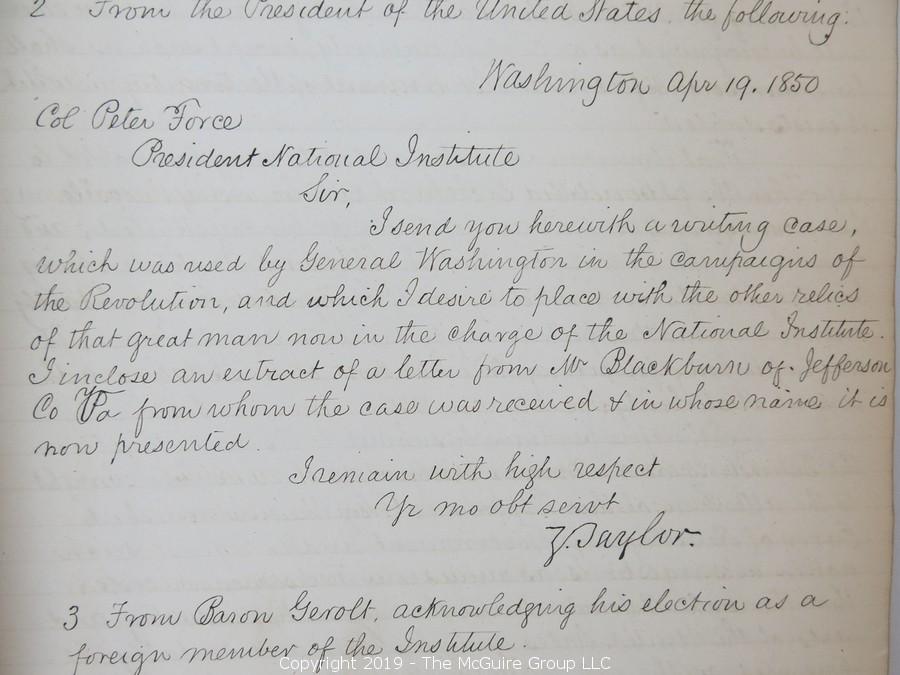 2 From the President of the United States, the following:
Washington Apr 19. 1850
Col Peter Force
President National Institute
Sir,
I send you herewith a writing case,
which was used by General Washington in the campaigns of
the Revolution, and which I desire to place with the other relics
of that great man now in the charge of the National Institute.
I inclose an extract of a letter from Mr Blackburn of Jefferson
Co Va from whom the case was received & in whose name it is
now presented.
I remain with high respect
Yr mo obt servt
Z. Taylor.
3 From Baron Gerolt, acknowledging his election as a
foreign member of the Institute.
Copyright 2019 - The McGuire Group LLC